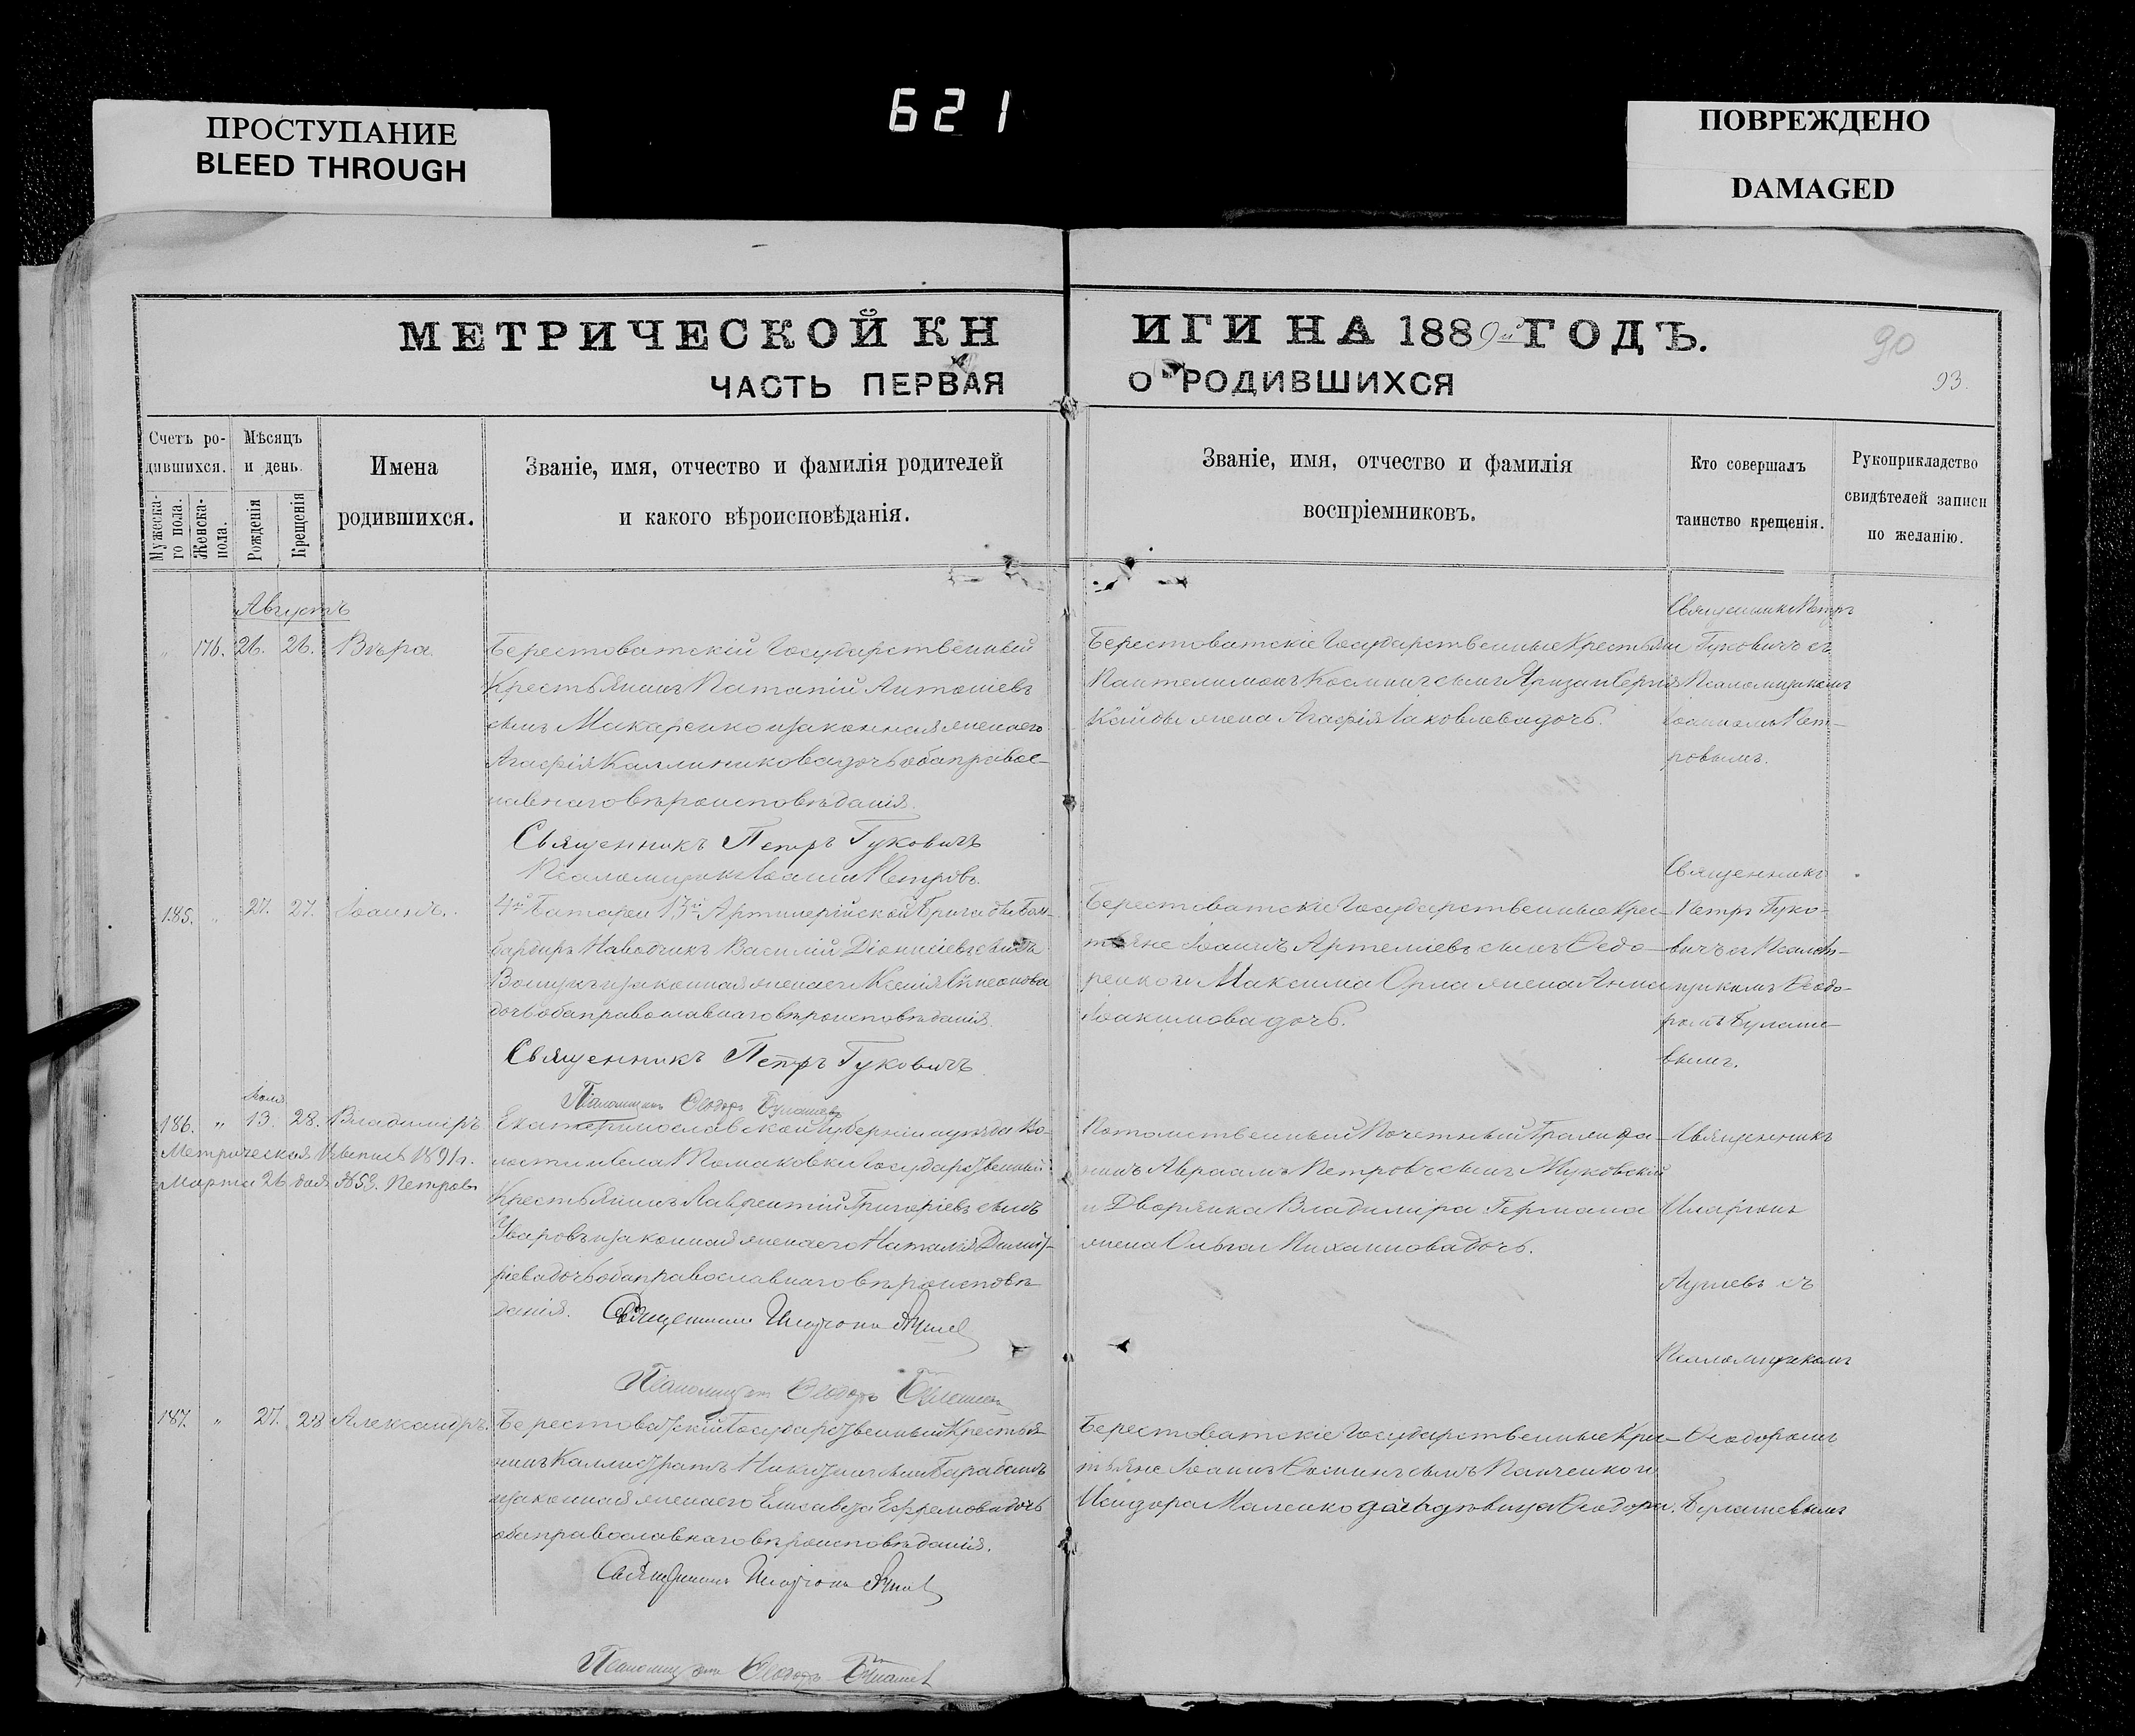 621
ПРОСТУПАНИЕ
BLEED THROUGH
ПОВРЕЖДЕНО
DAMAGED
МЕТРИЧЕСКОЙ КН
ИГИ НА 1889й ГОДЪ.
90
ЧАСТЬ ПЕРВАЯ
О РОДИВШИХСЯ
93.
Счетъ родившихся.
Мужескаго пола.
Женска- пола.
Мѣсяцъ и день.
Рожденія
Крещенія
Имена
родившихся.
Званіе, имя, отчество и фамилія родителей
и какого вѣроисповѣданія.
Званіе, имя, отчество и фамилія
воспріемниковъ.
Кто совершалъ
таинство крещенія.
Рукоприкладство
свидѣтелей записи
по желанію.
Августъ
" 176. 26. 26. Вѣра.
Берестоватскій Государственный
Крестьянинъ Патапій Антоніевъ
сынъ Макаренко и законная жена его
Агафія Каллиникова дочь оба правос-
лавнаго вѣроисповѣданія.
Священникъ Петръ Гуковичъ
Псаломщикъ Іоаннъ Петровъ.
Берестоватскіе Государственные Крестьяне
Пантелимонъ Косминъ сынъ и Сергія
Кайды жена Агафія Іаковлева дочь.
Священникъ Петръ
Гуковичъ съ
Псаломщикомъ
Іоанномъ Пет-
ровымъ.
185. " 27. 27. Іоаннъ.
4й Батареи 13й Артилерійской Бригады Бом-
бардиръ Наводчикъ Василій Діонисіевъ сынъ
и законная жена его Ксенія Симеонова
дочь оба православнаго вѣроисповѣданія.
Священникъ Петръ Гуковичъ
Псаломщикъ Ѳеодоръ Булашевъ
Берестоватскіе Государственные Крес-
тьяне Іоаннъ Артеміевъ сынъ Ѳедо-
ренко и Максима Орла жена Анна
Іоакимова дочь.
Священникъ
Петръ Гуко-
вичъ съ Псалом-
щикомъ Ѳеодо-
ромъ Булаше-
вымъ.
Іюля
186. " 13. 28. Владиміръ
Метрическая Выпись 1891г.
Марта 26 дня №53. Петровъ
Екатеринославской губерніи и уѣзда Во-
лости и села Томаковки Государственный
Крестьянинъ Лаврентій Григоріевъ сынъ
Уваровъ и законная жена его Наталія Димит-
ріева дочь оба православнаго вѣроисповѣ-
данія. Священникъ Иларіонъ
Псаломщикъ Ѳеодоръ Булашевъ
Потомственный Почетный Гражда-
нинъ Авраамъ Петровъ сынъ Жуковскій
и Дворянка Владиміра Германа
жена Ольга Михаилова дочь.
Священникъ
Иларіонъ
съ
Псаломщикомъ
Ѳеодоромъ
Булашевымъ
187. " 27. 28 Александръ.
Берестоватскій Государственный Крестья-
нинъ Каллистратъ Никитинъ сынъ Барабашъ
и законная жена его Елисавета Ефремова дочь
оба православнаго вѣроисповѣданія.
Священникъ Иларіонъ
Псаломщикъ Ѳеодоръ Булашевъ
Берестоватскіе Государственные Крес-
тьяне Іоаннъ Ѳоминъ сынъ Панченко и
Исидора Маленко дочь дѣвица Ѳеодора.